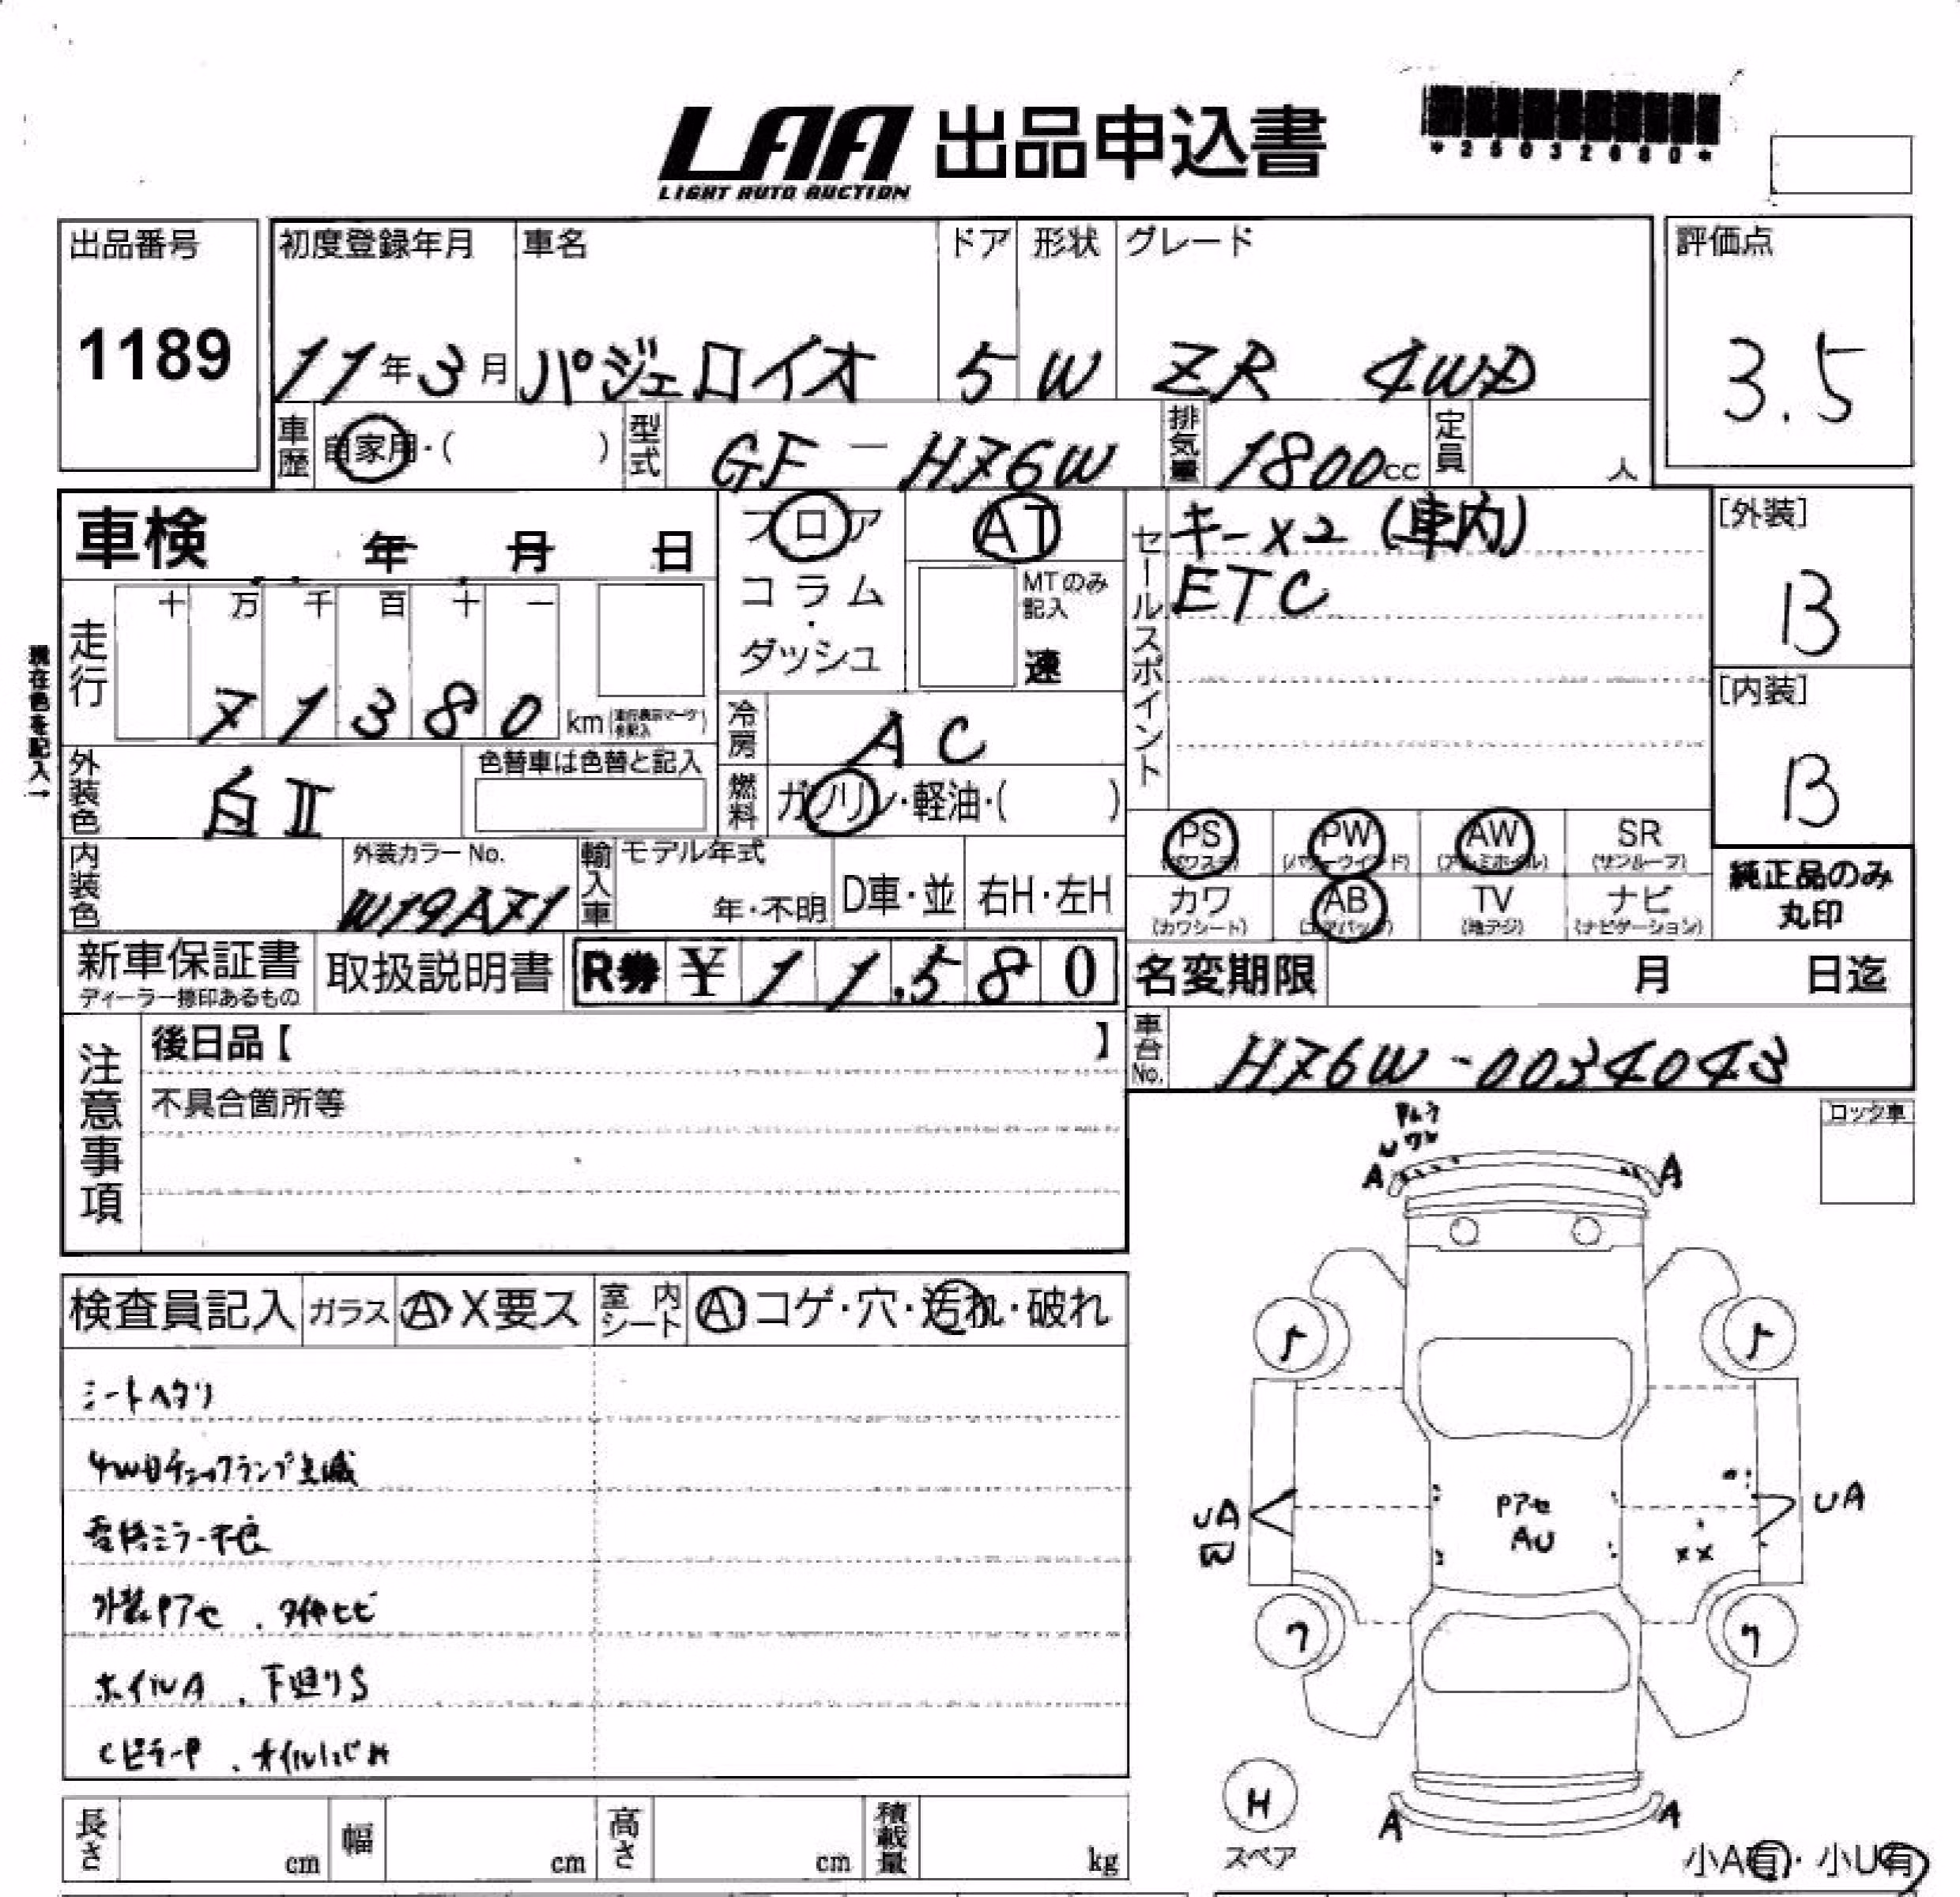 LAA 出品申込書
LIGHT AUTO AUCTION
*25032680*
出品番号
1189
初度登録年月 車名 ドア 形状 グレード
11年3月 パジェロイオ 5 W ZR 4WD
評価点
3.5
車歴 自家用・( ) 型式 GF-H76W 排気量 1800cc 定員 人
車検 年 月 日
フロア
コラム・
ダッシュ
AT
MTのみ
記入
速
セールスポイント
キー×2 (車内)
ETC
[外装]
B
[内装]
B
現在色を記入→
走行 十 万 千 百 十 一
71380 km
冷房 AC
外装色 白II
色替車は色替と記入
燃料 ガソリン・軽油・( )
PS (パワステ) PW (パワーウインド) AW (アルミホイル) SR (サンルーフ)
カワ (カワシート) AB (エアバッグ) TV (地デジ) ナビ (ナビゲーション)
純正品のみ
丸印
内装色
外装カラーNo.
W19A71
輸入車 モデル年式
年・不明 D車・並 右H・左H
新車保証書
ディーラー捺印あるもの
取扱説明書
R券 ¥11,580
名変期限 月 日迄
車台No. H76W-0034043
注意事項
後日品【 】
不具合箇所等
ロック車
検査員記入 ガラス A・X要ス 室内シート A コゲ・穴・汚れ・破れ
シートヘタリ
4WDチェックランプ点滅
電格ミラー不良
外装Pアセ、タイヤヒビ
ホイルA、下廻りS
CピラーP、オイルにじみ
A A
UA UA
W
Pアセ
AU
××
H
スペア
A A
小A有・小U有
長さ cm 幅 cm 高さ cm 積載量 kg